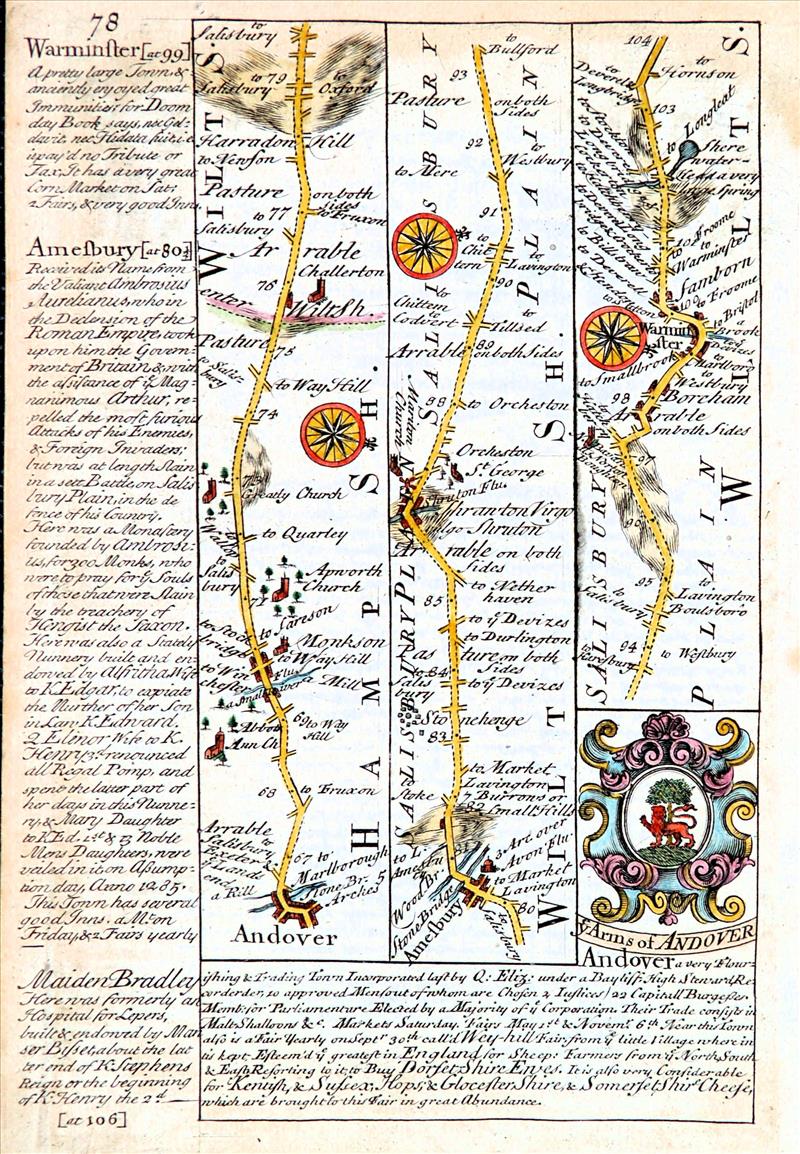 78
Warminster [at 99]
A pretty large Town, &
anciently enjoyed great
Immunities for Doom
day Book says, nec Gel-
davit, nec Hidata fuit i.e
it pay'd no Tribute or
Tax. It has a very great
Corn Market on Sat:
2 Fairs, & very good Inns.
Amesbury [at 80½]
Received its Name from
the Valiant Ambrosius
Aurelianus, who in
the Declension of the
Roman Empire, took
upon him the Govern-
ment of Britain & with
the assistance of yͤ Mag-
nanimous Arthur, re-
pelled the most furious
Attacks of his Enemies,
& Foreign Invaders;
but was at length slain
in a sett Battle on Salis
bury Plain, in the de
fence of his Country.
Here was a Monastery
founded by Ambrosi-
us, for 300 Monks, who
were to pray for yͤ Souls
of those that were Slain
by the treachery of
Hengist the Saxon.
Here was also a Stately
Nunnery built and en-
dowed by Alfritha Wife
to K. Edgar, to expiate
the Murther of her Son
in Law K. Edward.
Q. Elinor Wife to K.
Henry 3ᵈ renounced
all Regal Pomp, and
spent the latter part of
her days in this Nunne-
ry, & Mary Daughter
to K Ed. 1st & 13 Noble
Mens Daughters, were
veiled in it on Assump-
tion day Anno 1285.
This Town has several
good Inns. a Mt on
Friday, & 2 Fairs yearly
Maiden Bradley
Here was formerly an
Hospital for Lepers,
built & endowed by Man
ser Bysset, about the lat
ter end of K. Stephens
Reign or the beginning
of K. Henry the 2d
[at 106]
to
Salisbury
to 79
Salisbury
to
Oxford
Harradon Hill
to Nenson
Pasture on both
Sides
to 77
to Fruxon
Salisbury
Arrable
Challerton
76
enter Wiltsh
Pasture
75
to Salis-
bury
to Way Hill
74
73
Greatly Church
to Quarley
to Wallop
to
Salis
bury
Apworth
Church
71
to Sarson
to Stock
bridge
Monkson
to Way Hill
to Win
chester
a Mill
a small River
Flu.
69
to Way
Hill
Abbots
Ann Ch
68
to Fruxon
Arrable
Salisbury
Exeter &
yͤ Lands
end
a Rill
67
to
Marlborough
Stone Br. 5
Arches
Andover
WILTS.
HAMPSH.
to
Bullford
93
Pasture on both
Sides
92
to
Westbury
to Mere
91
to
Chit
tern
to
Lavington
90
to
Chittern
Codvert
to
Tilsed
89
Arrable on both Sides
88
to Orcheston
Marden
Church
Orcheston
St. George
Shruton Flu.
Shrawton Virgo
Shruton
Arrable on both
Sides
to Nether
haven
85
to yͤ Devizes
to Durlington
Pasture on both
Sides
to 84
Salis
bury
to yͤ Devizes
Stonehenge
83
to Market
Lavington
to
Stoke
7 Burrows or
82 Small Hills
3 Arc over
Avon Flu.
to L.
Amesbu
to Market
Lavington
Wood Br.
Stone Bridge
Amesbury
to
Salisbury
80
SALISBURY PLAIN
WILTSH.
104
to
Hornson
Deverell
Longbridge
103
to Longleat
Shere
water
very
Spring
to
Froome
101
to
Warminster
Samborn
100
to Froome
to Bristol
a
Brook
to
Devizes
Marlboro
Warmin
ster
to Smallbrook
to
Westbury
98
Boreham
Arrable
on both Sides
97
96
95
to
Salisbury
to
Lavington
Boulsboro
94
to Westbury
SALISBURY PLAIN
WILTS.
yͤ Arms of ANDOVER
Andover a very Flour-
ishing & Trading Town Incorporated last by Q: Eliz: under a Bayliff, High Steward Re-
corderder, 10 approved Men out of whom are Chosen 2 Justices / 22 Capitall Burgesses
Membs for Parliament are Elected by a Majority of yͤ Corporation. Their Trade consists in
Malt, Shalloons &c. Markets Saturday. Fairs May 1st & Novemr. 6th Near this Town
also is a Fair Yearly on Sept 30th call'd Wey-hill Fair, from yͤ little Village where in
tis kept, Esteem'd yͤ greatest in England for Sheep: Farmers from yͤ North, South
& East Resorting to it, to Buy Dorsetshire Ewes. It is also very Considerable
for Kentish, & Sussex, Hops, & Glocestershire, & Somersetshir Cheese,
which are brought to this Fair in great Abundance.